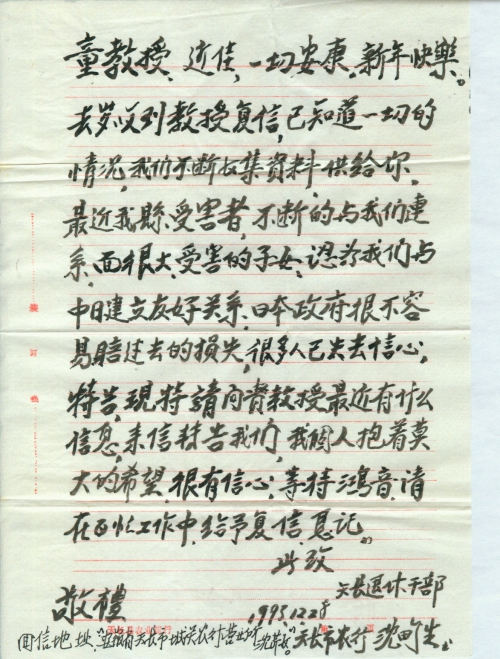 童教授、近佳,一切安康。新年快樂。
去岁收到教授复信,已知道一切的
情况,我们不断收集資料,供给你,
最近我縣受害者,不断的与我们連
系,面很大,受害的子女,認为我们与
中日建立友好关系,日本政府很不容
易賠过去的損失,很多人已失去信心,
特告,現特請问贵教授最近有什么
信息,来信特告我们,我個人抱着莫
大的希望,很有信心,等待鴻音,请
在百忙工作中,给予复信,急记。
此致
天长退休干部
敬禮
1993.12.28
天长市农行 沈
回信地址:安徽省天长市城关农行营业所
裝
訂
线